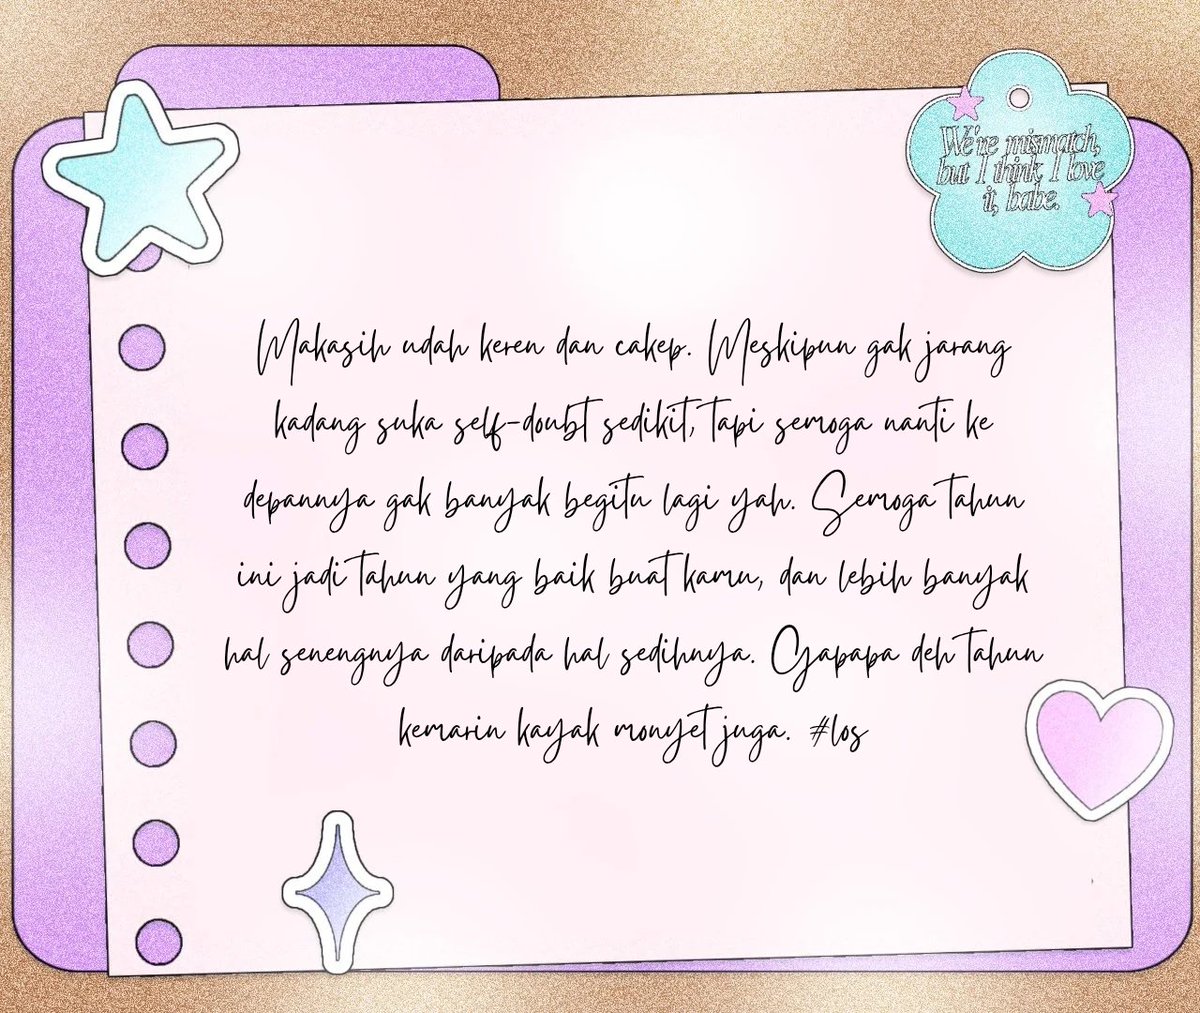 We're mismatch,
but I think I love
it, babe.
Makasih udah keren dan cakep. Meskipun gak jarang
kadang suka self-doubt sedikit, tapi semoga nanti ke
depannya gak banyak begitu lagi yah. Semoga tahun
ini jadi tahun yang baik buat kamu, dan lebih banyak
hal senengnya daripada hal sedihnya. Gapapa deh tahun
kemarin kayak monyet juga. #los